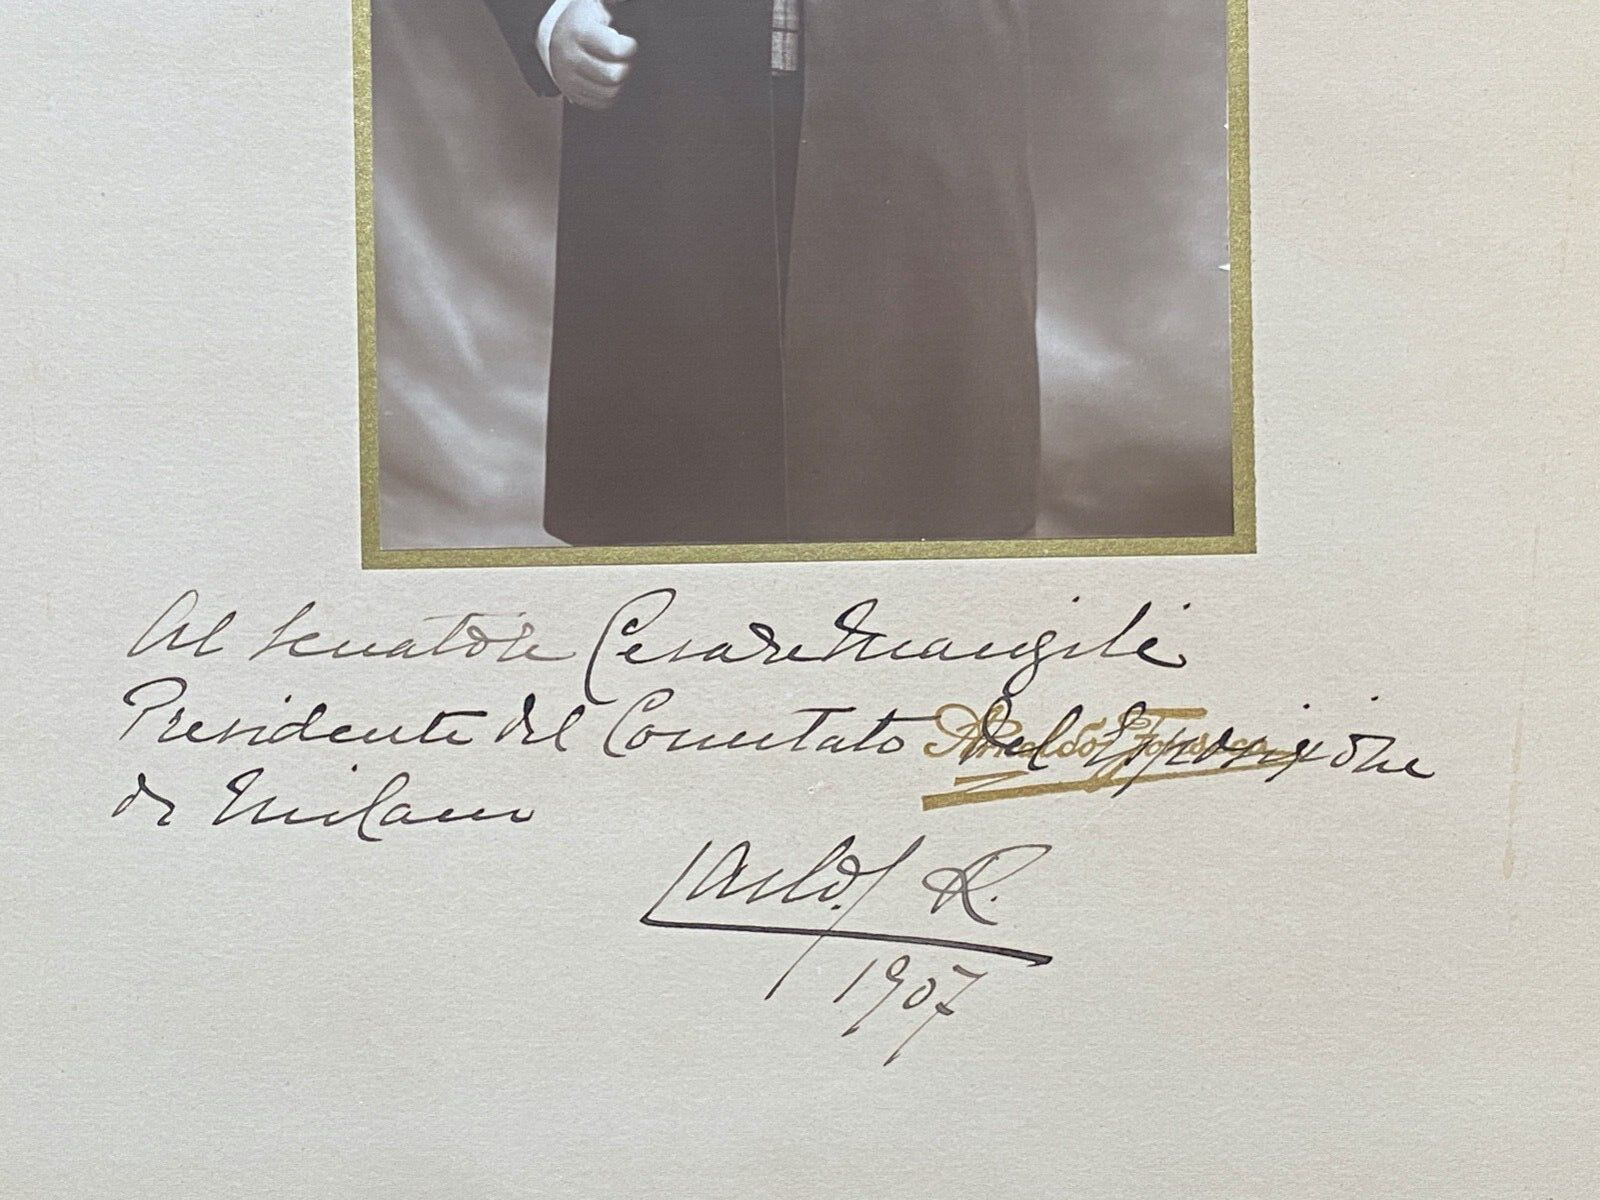 Al Senatore Cesare Mangili
Presidente del Comitato del Esposizione
di Milano
Arnaldo Fonseca
Carlos R.
1907